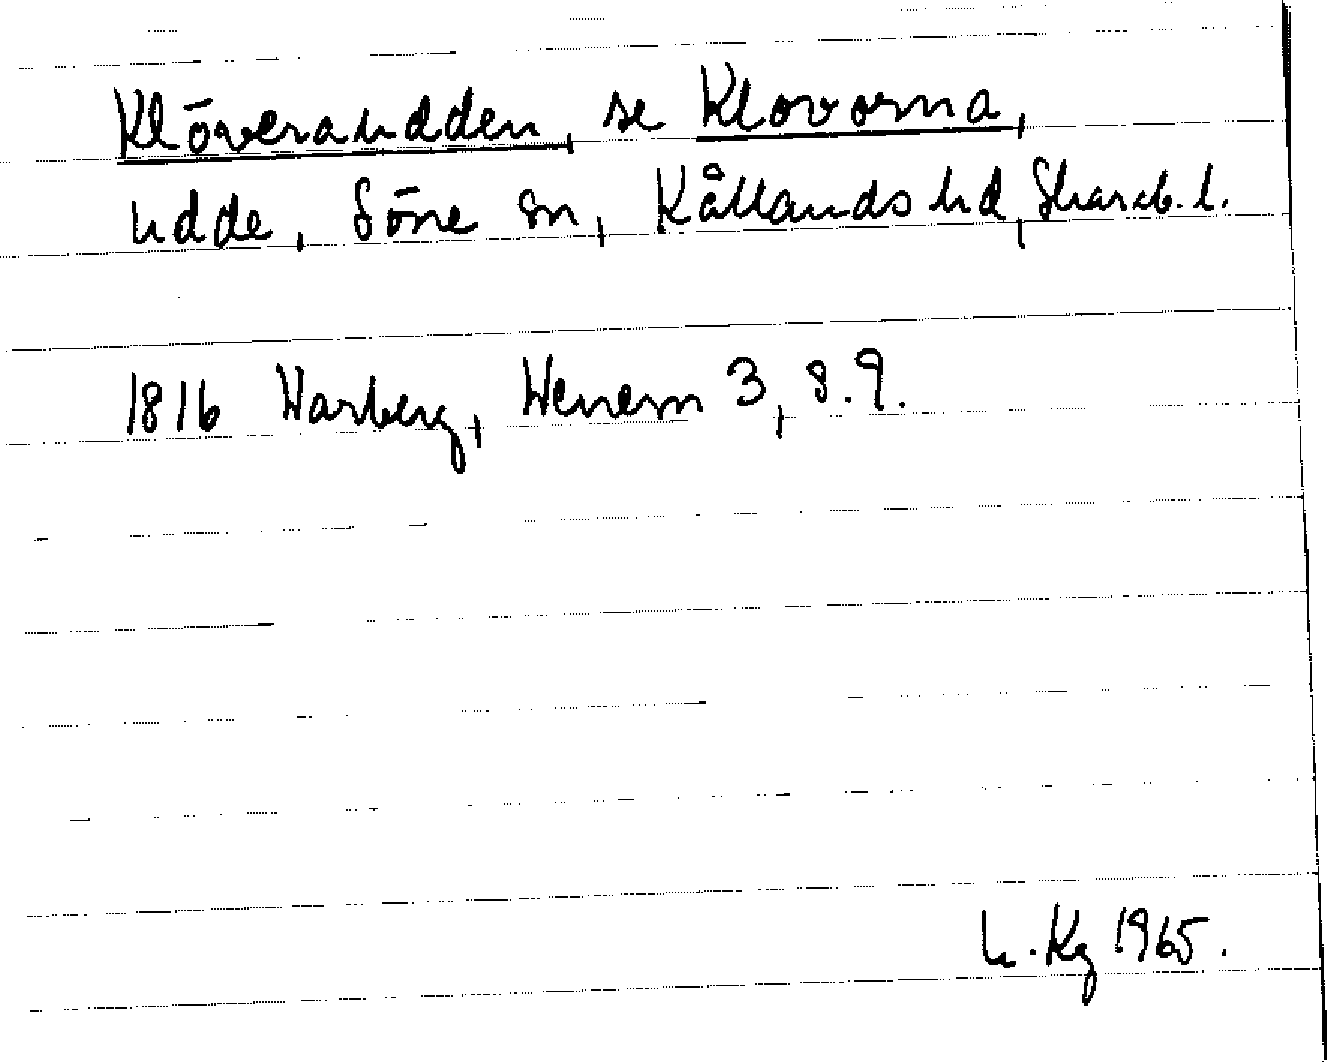 Klöveraudden, se Klovorna,
udde, Söne sn, Kållands hd, Skarab. l.
1816 Warberg, Wenern 3, s. 9.
h. Kg 1965.